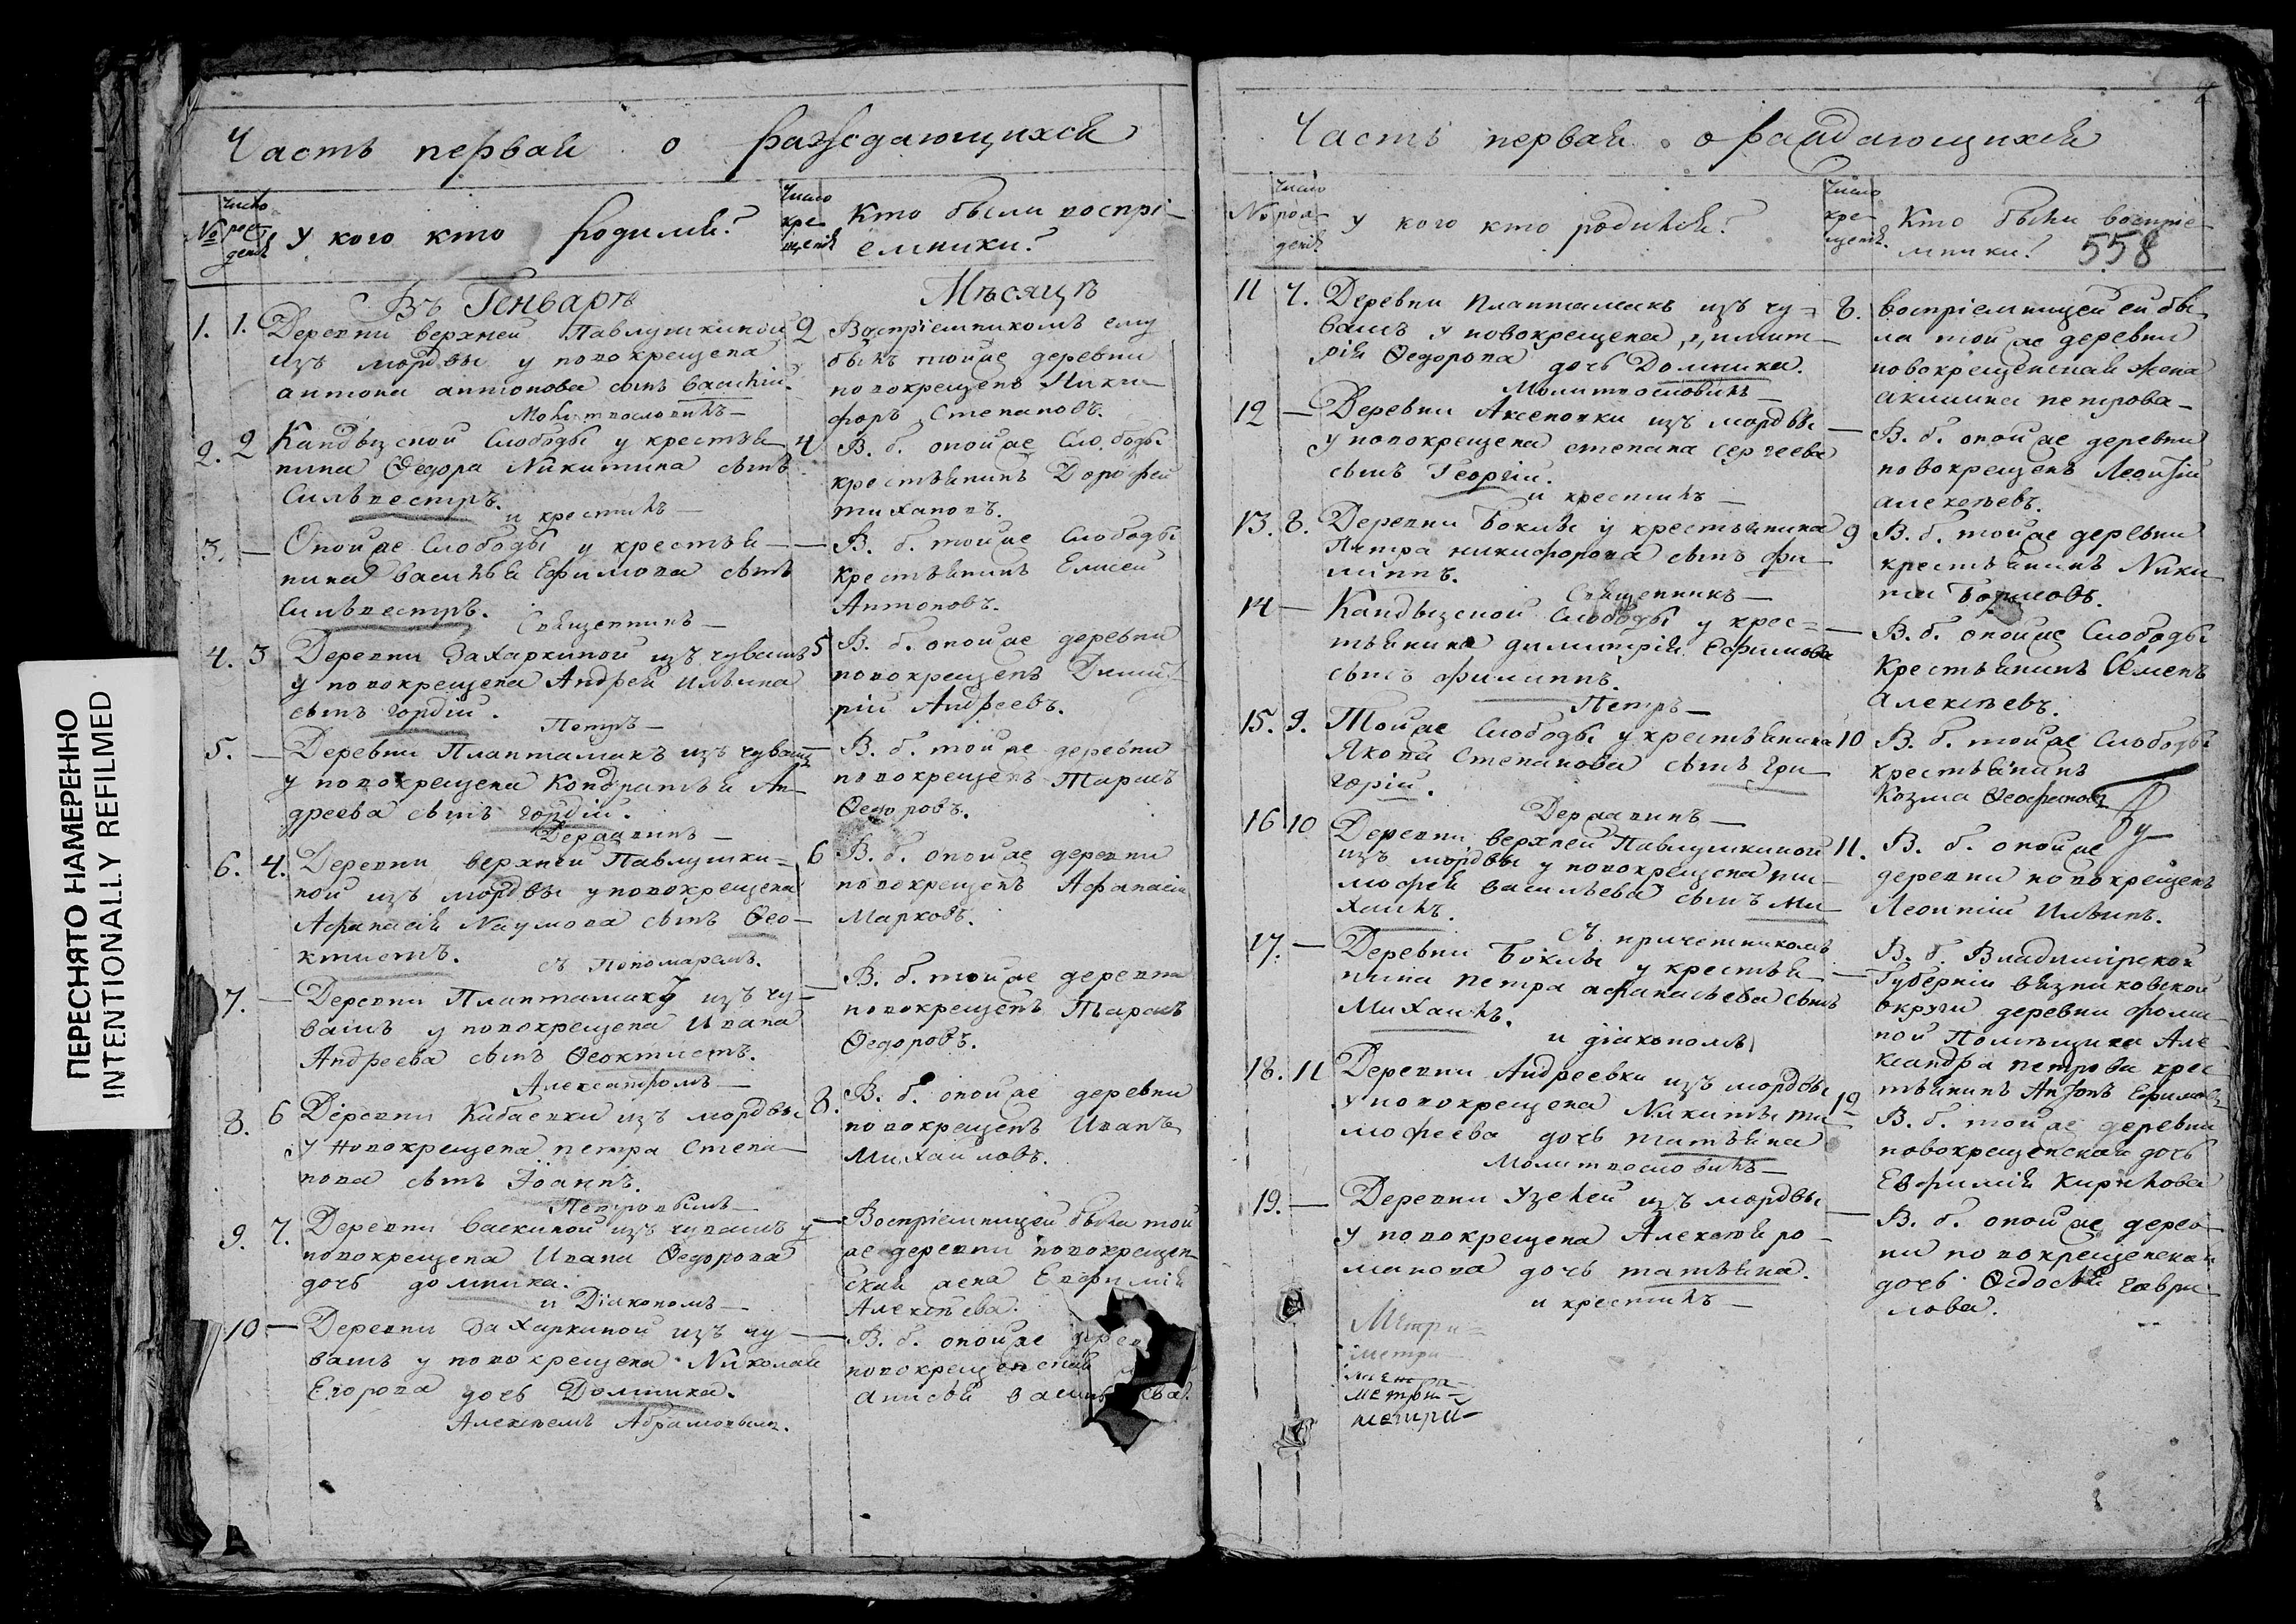 ПЕРЕСНЯТО НАМЕРЕННО
INTENTIONALLY REFILMED
Часть первая о раждающихся
№
число рождения
У кого кто родился?
число крещения
Кто были воспрі-
емники?
Въ Генваре
Месяце
1. 1. Деревни верхней Павлушкиной
изъ мордвы у новокрещена
антона антонова сынъ василий.
Молитвословилъ
2 Воспріемникомъ ему
былъ тойже деревни
новокрещенъ Ники-
форъ Степановъ.
2. 2 Кандызской Слободы у крестья-
нина Ѳедора Никитина сынъ
Сильвестръ.
и крестилъ
4 В. б. онойже Слободы
крестьянинъ Дорофей
тихановъ.
3. — Онойже Слободы у крестья-
нина василья Ефимова сынъ
Сильвестръ.
Священникъ
— В. б. тойже Слободы
крестьянинъ Елисей
Антоновъ.
4. 3 Деревни Захаркиной изъ чувашъ
у новокрещена Андрея Ильина
сынъ гордій.
Петръ
5 В. б. онойже деревни
новокрещенъ Димит-
рій Андреевъ.
5. — Деревни Плантамакъ изъ чувашъ
у новокрещена Кондратья Ан-
дреева сынъ гордій.
Державинъ
— В. б. тойже деревни
новокрещенъ Тарасъ
Ѳедоровъ.
6. 4. Деревни верхней Павлушки-
ной изъ мордвы у новокрещена
Афанасія Наумова сынъ Ѳео-
ктистъ.
съ Пономаремъ.
6 В. б. онойже деревни
новокрещенъ Афанасій
Марковъ.
7. — Деревни Плантамакъ изъ чу-
вашъ у новокрещена Ивана
Андреева сынъ Ѳеоктистъ.
Александромъ
— В. б. тойже деревни
новокрещенъ Тарасъ
Ѳедоровъ.
8. 6 Деревни Кабаевки изъ мордвы
у новокрещена петра Степа-
нова сынъ Іоаннъ.
Петровымъ
8. В. б. онойже деревни
новокрещенъ Иванъ
Михайловъ.
9. 7. Деревни васкиной изъ чувашъ у
новокрещена Ивана Ѳедорова
дочь домника.
и Діакономъ
— Воспріемницей была той
же деревни новокрещен-
ская жена Евфимія
Алексѣева.
10 — Деревни Захаркиной изъ чу-
вашъ у новокрещена Николая
Егорова дочь Домника.
Алексѣемъ Абрамовымъ.
— В. б. онойже
новокрещенская
анисья
Часть первая о раждающихся
№
число рожденія
У кого кто родился?
число крещенія.
Кто были воспріе-
мники?
558
11 7. Деревни Плантамакъ изъ чу-
вашъ у новокрещена димит-
рія Ѳедорова дочь Домника.
Молитвословилъ
8. воспріемницей ей бы-
ла той же деревни
новокрещенская жена
акилина петрова
12 — Деревни Аксеновки изъ мордвы
у новокрещена степана сергеева
сынъ Георгій.
и крестилъ
— В. б. онойже деревни
новокрещенъ Леонтій
алексѣевъ.
13. 8. Деревни Боклы у крестьянина
Петра никифорова сынъ фи-
липпъ.
Священникъ
9 В. б. тойже деревни
крестьянинъ Ники-
та Борисовъ.
14 — Кандызской Слободы у крес-
тьянина димитрія Ефимова
сынъ филиппъ.
Петръ
— В. б. онойже Слободы
Крестьянинъ Семенъ
алексѣевъ.
15. 9. Тойже Слободы у крестьянина
Якова Степанова сынъ гри-
горій.
Державинъ
10 В. б. тойже Слободы
крестьянинъ
Козма
16 10 Деревни верхней Павлушкиной
изъ мордвы у новокрещена ти-
мофея васильева сынъ Ми-
хаилъ.
съ причетникомъ
11. В. б. онойже
деревни новокрещенъ
Леонтій Ильинъ.
17. — Деревни Боклы у крестья-
нина петра афанасьева сынъ
Михаилъ.
и діакономъ
— В. б. Владимірской
Губерніи вязниковской
округи деревни фоми-
ной Помѣщика Але-
ксандра петрова крес-
тьянинъ Антонъ Ефимовъ
18. 11 Деревни Андреевки изъ мордвы
у новокрещена Никиты ти-
мофеева дочь татьяна
Молитвословилъ
12 В. б. тойже деревни
новокрещенская дочь
Евфимія Кирилова
19. — Деревни Узелей изъ мордвы
у новокрещена Алексѣя ро-
манова дочь татьяна.
и крестилъ
— В. б. онойже дерев-
ни новокрещенская
дочь Ѳедосья гаври-
лова.
Метри-
метри-
метри-
метри-
метри-